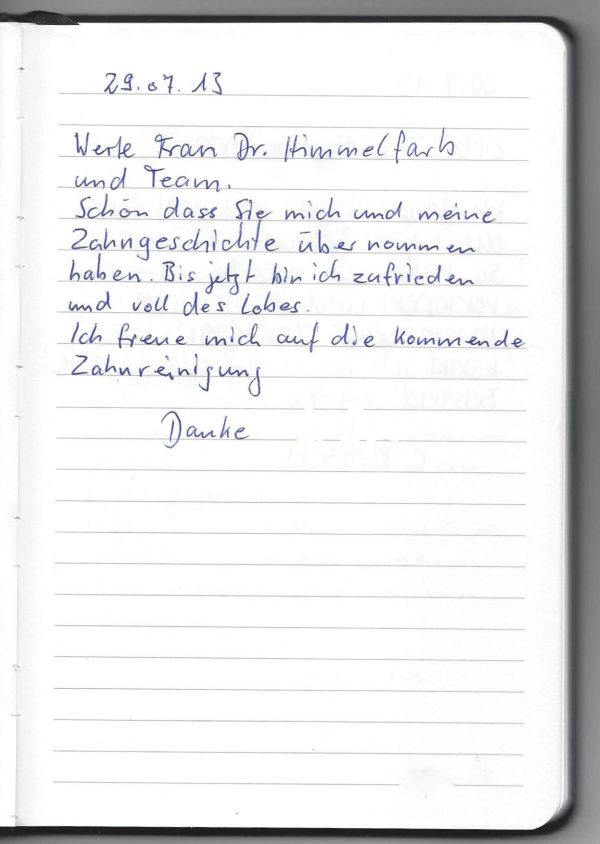 29.07.13
Werte Frau Dr. Himmelfarb
und Team.
Schön dass Sie mich und meine
Zahngeschichte übernommen
haben. Bis jetzt bin ich zufrieden
und voll des Lobes.
Ich freue mich auf die kommende
Zahnreinigung
Danke